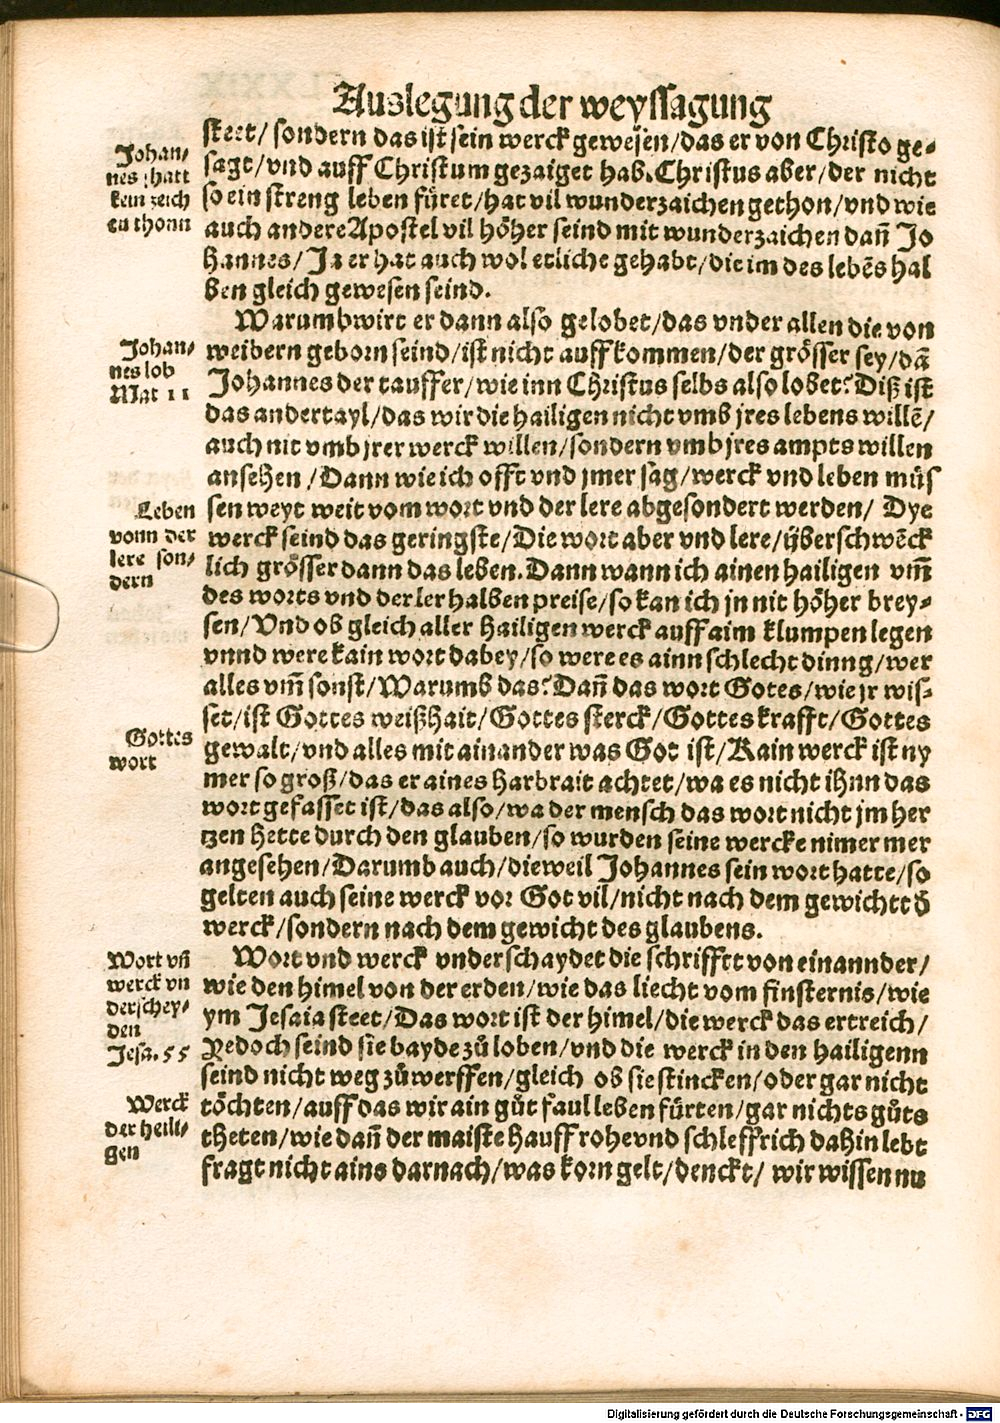 Auslegung der weyssagung
steet/ sondern das ist sein werck gewesen/das er von Christo ge-
sagt/vnd auff Christum gezaiget hab. Christus aber/der nicht
so ein streng leben füret/hat vil wunderzaichen gethon/vnd wie
auch andere Apostel vil höher seind mit wunderzaichen dañ Jo
hannes/Ja er hat auch wol etliche gehabt/die im des lebēs hal
ben gleich gewesen seind.
Johan/
nes hatt
kein zeich
en thonn
Warumb wirt er dann also gelobet/das vnder allen die von
weibern geborn seind/ist nicht auffkommen/der grösser sey/dā
Johannes der tauffer/wie inn Christus selbs also lobet? Diß ist
das andertayl/das wir die hailigen nicht vmb jres lebens willē/
auch nit vmb jrer werck willen/sondern vmb jres ampts willen
ansehen/Dann wie ich offt vnd jmer sag/werck vnd leben müs
sen weyt weit vom wort vnd der lere abgesondert werden/ Dye
werck seind das geringste/Die wort aber vnd lere/überschwēck
lich grösser dann das leben. Dann wann ich ainen hailigen vm̄
des worts vnd der ler halben preise/so kan ich jn nit höher brey-
sen/Vnd ob gleich aller hailigen werck auff aim klumpen legen
vnnd were kain wort dabey/so were es ainn schlecht dinng/wer
alles vm̄ sonst/Warumb das? Dañ das wort Gotes/wie jr wis-
set/ist Gottes weißhait/Gottes sterck/Gottes krafft/Gottes
gewalt/vnd alles mit ainander was Got ist/Kain werck ist ny
mer so groß/das er aines harbrait achtet/wa es nicht ihnn das
wort gefasset ist/das also/wa der mensch das wort nicht jm her
tzen hette durch den glauben/so wurden seine wercke nimer mer
angesehen/Darumb auch/dieweil Johannes sein wort hatte/so
gelten auch seine werck vor Got vil/nicht nach dem gewichtt d̄
werck/sondern nach dem gewicht des glaubens.
Johan/
nes lob
Mat 11
Leben
vonn der
lere son/
dern
Gottes
wort
Wort vnd werck vnderschaydet die schrifftt von einannder/
wie den himel von der erden/wie das liecht vom finsternis/wie
ym Jesaia steet/Das wort ist der himel/die werck das ertreich/
Yedoch seind sie bayde zů loben/vnd die werck in den hailigenn
seind nicht weg zůwerffen/gleich ob sie stincken/oder gar nicht
töchten/auff das wir ain gůt faul leben fürten/gar nichts gůts
theten/wie dañ der maiste hauff rohe vnd schleffrich dahin lebt
fragt nicht ains darnach/was korn gelt/denckt/ wir wissen nu
Wort vñ
werck vn
derschey/
den
Jesa. 55
Werck
der heili/
gen
Digitalisierung gefördert durch die Deutsche Forschungsgemeinschaft - DFG